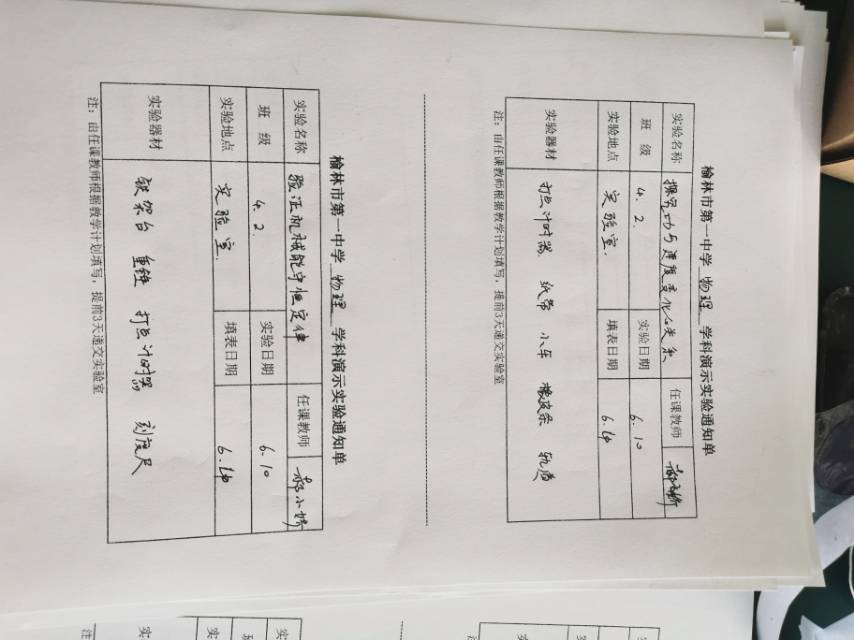 榆林市第一中学 物理 学科演示实验通知单
实验名称 探究功与速度变化的关系 任课教师
班 级 4. 2. 实验日期 6. 10
实验地点 实验室. 填表日期 6. 14
实验器材 打点计时器 纸带 小车 橡皮条 轨道
注：由任课教师根据教学计划填写，提前3天递交实验室
榆林市第一中学 物理 学科演示实验通知单
实验名称 验证机械能守恒定律 任课教师 小婷
班 级 4. 2. 实验日期 6. 10
实验地点 实验室. 填表日期 6. 14
实验器材 铁架台 重锤 打点计时器 刻度尺
注：由任课教师根据教学计划填写，提前3天递交实验室